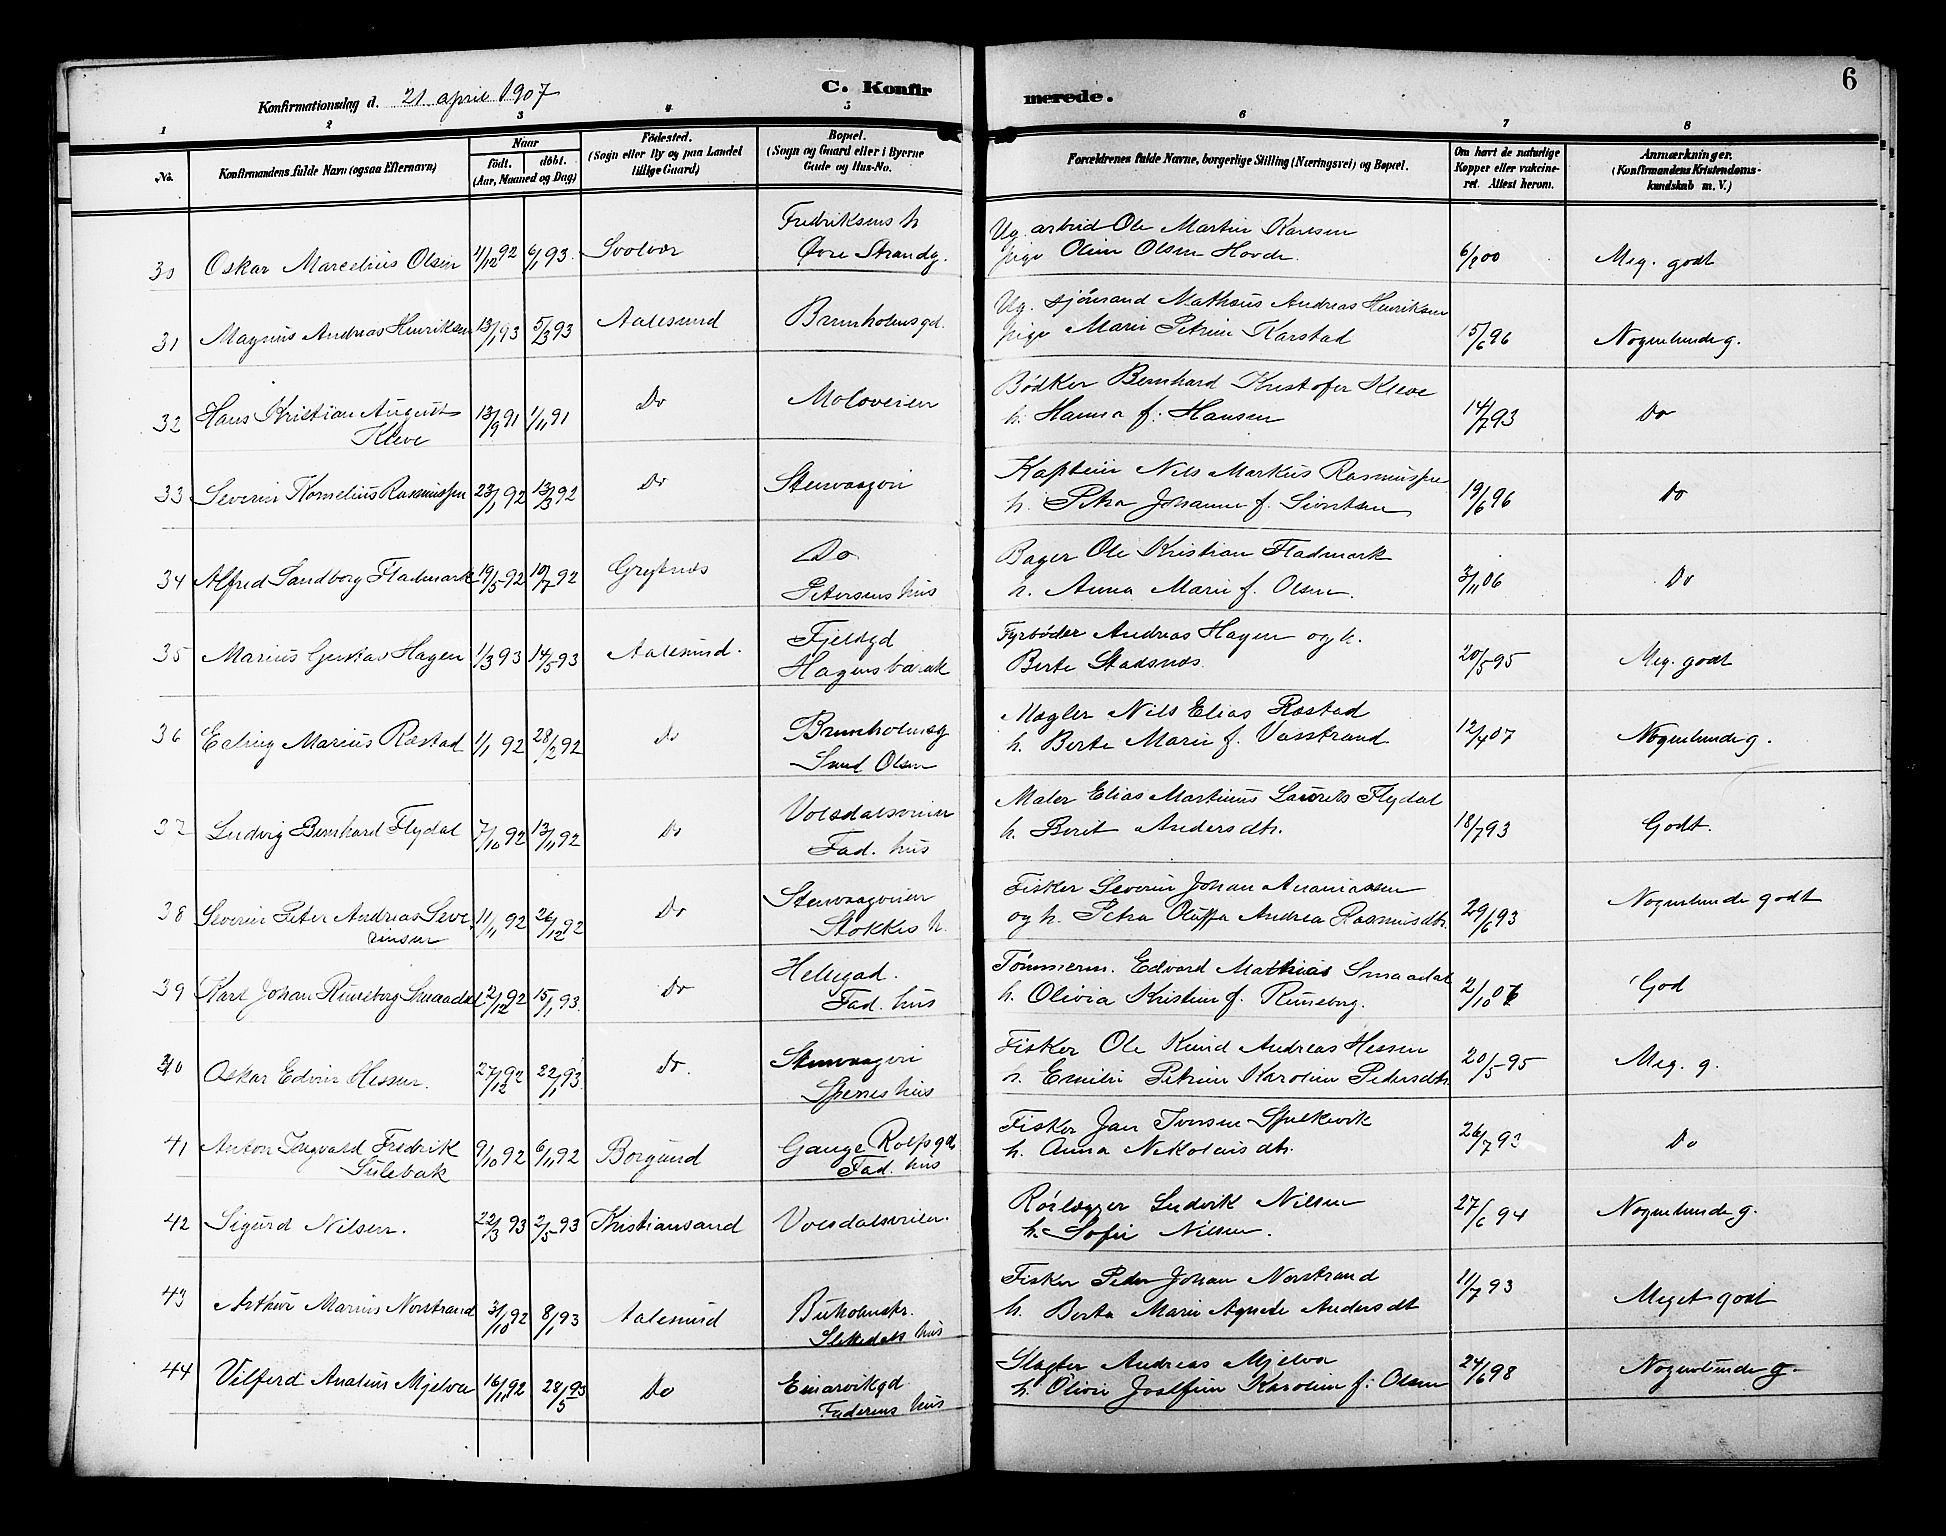 6
Konfirmationsdag d. 21 april 1907
C. Konfirmerede.
1 2 3 4 5 6 7 8
No.
Konfirmandens fulde Navn (ogsaa Efternavn)
Naar
födt. döbt.
(Aar, Maaned og Dag)
Födested.
(Sogn eller By og paa Landet
tillige Gaard)
Bopæl.
(Sogn og Gaard eller i Byerne
Gade og Hus-No.
Forældrenes fulde Navne, borgerlige Stilling (Næringsvei) og Bopæl.
Om havt de naturlige
Kopper eller vakcine-
ret. Attest herom.
Anmærkninger.
(Konfirmandens Kristendoms-
kundskab m. V.)
30 Oskar Marcelius Olsen 4/12 92 6/1 93. Svolvær Fredriksens h
Øvre Strandg.
Ug. arbeid Ole Martin Karlsen
pige Oline Olsen Hovde. 6/00 Meg. godt
31 Magnus Andreas Henriksen 13/1 93 5/3 93 Aalesund Brunholmsgd.
Ug. sjömand Matheus Andreas Henriksen
pige Marie Petrine Karstad 15/6 96 Nogenlunde g.
32 Hans Kristian August
Kleve 13/9 91 1/11 91 Do Moloveien
Bødker Bernhard Kristofer Kleve
h. Hanna f. Hansen 14/7 93 Do
33 Severin Kornelius Rasmussen 23/1 92 13/3 92 Do Stenvaagvei
Kaptein Nils Markus Rasmussen
h. Petra Johanne f. Sivertsen 19/6 96 Do
34 Alfred Sandborg Fladmark 19/5 92 10/7 92 Grytnæs Do
Petersens hus
Bager Ole Kristian Fladmark
h. Anna Marie f. Olsen. 3/11 06 Do
35 Marius Gustav Hagen 1/3 93 14/5 93 Aalesund. Fjeldgd
Hagens barak
Fyrbøder Andreas Hagen og h.
Berte Stadsnæs. 20/5 95 Meg. godt
36 Erling Marius Røstad 1/1 92 28/2 92 do Brunholmsg
Smed Olsen
Mægler Nils Elias Røstad
h. Berte Marie f. Vasstrand 12/4 07 Nogenlunde g.
37 Ludvig Bernhard Flydal 7/10 92 13/11 92 Do Volsdalsveien
Fad. hus
Maler Elias Martinus Laurits Flydal
h. Berit Andersdtr. 18/7 93 Godt.
38 Severin Peter Andreas Seve-
rinsen 11/11 92 26/12 92 Do Stenvaagveien
Stokkes h.
Fisker Severin Johan Ananiassen
og h. Petra Oluffa Andrea Rasmusdtr. 29/6 93 Nogenlunde godt
39 Karl Johan Runeborg Smaadal 2/12 92 15/1 93. Do Hellegad.
Fad. hus
Tömmerm. Edvard Mathias Smaadal
h. Olivia Kristine f. Runeborg. 2/10 06 God
40 Oskar Edvin Hessen. 27/12 92 22/1 93 Do. Stenvaagvei
Spenes hus
Fisker Ole Knud Andreas Hessen
h. Emilie Petrine Karoline Pedersdtr. 20/5 95 Meg. g.
41 Anton Ingvald Fredrik
Sulebak 9/10 92 6/11 92 Borgund Gange Rolfs gd
Fad. hus
Fisker Jan Iversen Spilkevik
h. Anna Nikolaisdtr. 26/7 93 Do
42 Sigurd Nilsen. 22/3 93 2/5 93 Kristiansand Volsdalsveien.
Rørlægger Ludvik Nilsen
h. Sofie Nilsen. 27/6 94 Nogenlunde g.
43 Arthur Marius Norstrand 31/10 92 8/1 93 Aalesund Buholmstr.
hus
Fisker Peder Johan Norstrand
h. Berta Marie Agnete Andersdt 11/7 93 Meget godt
44 Vilferd Analius Mjelva 16/11 92 28/5 93 Do Einarvikgd
Faderens hus
Slagter Andreas Mjelva
h. Olivie Josefine Karoline f. Olsen 24/6 98 Nogenlunde g.